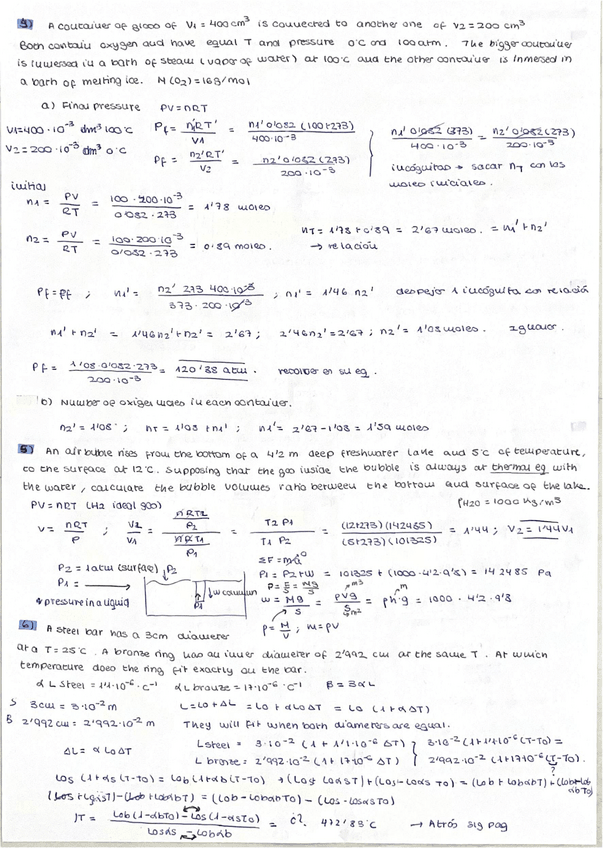 4) A container of glass of V1 = 400 cm³ is connected to another one of V2 = 200 cm³
Both contain oxygen and have equal T and pressure 0°C and 100 atm. The bigger container
is immersed in a bath of steam (vapor of water) at 100°C and the other container is inmersed in
a bath of melting ice. M(O2) = 16 g/mol
a) Final pressure PV = nRT
V1 = 400·10⁻³ dm³ 100°C
V2 = 200·10⁻³ dm³ 0°C
Pf = n1'RT'/V1 = n1' 0'082 (100+273)/400·10⁻³
Pf = n2'RT'/V2 = n2' 0'082 (273)/200·10⁻³
n1' 0'082 (373)/400·10⁻³ = n2' 0'082 (273)/200·10⁻³
incógnitas → sacar nT con los
moles iniciales.
initial
n1 = PV/RT = 100·400·10⁻³/0'082·273 = 1'78 moles
n2 = PV/RT = 100·200·10⁻³/0'082·273 = 0'89 moles.
nT = 1'78 + 0'89 = 2'67 moles. = n1' + n2'
→ relación
Pf = Pf ; n1' = n2' 273 400·10⁻³/373·200·10⁻³ ; n1' = 1'46 n2' despejar 1 incógnita con relación
n1' + n2' = 1'46n2' + n2' = 2'67 ; 2'46n2' = 2'67 ; n2' = 1'08 moles. Igualar.
Pf = 1'08·0'082·273/200·10⁻³ = 120'88 atm. recolocar en su eq.
b) Number of oxigen moles in each container.
n2' = 1'08 ; nT = 1'08 + n1' ; n1' = 2'67 - 1'08 = 1'59 moles
5) An air bubble rises from the bottom of a 4'2 m deep freshwater lake and 5°C of temperature,
to the surface at 12°C. Supposing that the gas inside the bubble is always at thermal eq with
the water, calculate the bubble volumes ratio between the bottom and surface of the lake.
PV = nRT (H2 ideal gas) ρH2O = 1000 kg/m³
V = nRT/P ; V2/V1 = nRT2/P2 / nRT1/P1 = T2 P1/T1 P2 = (12+273)(142485)/(5+273)(101325) = 1'44 ; V2 = 1'44V1
P2 = 1 atm (surface)
P1 =
* pressure in a liquid
P2
w column
P1
ΣF = ma⁰
P1 = P2 + w = 101325 + (1000·4'2·9'8) = 142485 Pa
P = F/S = Mg/S
w = Mg/S = ρVg/S = ρh·g = 1000·4'2·9'8
ρ = M/V ; m = ρV
6) A steel bar has a 3cm diameter
at a T = 25°C. A bronze ring has an inner diameter of 2'992 cm at the same T. At which
temperature does the ring fit exactly on the bar.
αL steel = 11·10⁻⁶ °C⁻¹ αL bronze = 17·10⁻⁶ °C⁻¹ β = 3αL
S 3cm = 3·10⁻² m L = Lo + ΔL = Lo + αLoΔT = Lo (1 + αΔT)
B 2'992 cm = 2'992·10⁻² m They will fit when both diameters are equal.
ΔL = αLoΔT
L steel = 3·10⁻² (1 + 11·10⁻⁶ ΔT)
L bronze = 2'992·10⁻² (1 + 17·10⁻⁶ ΔT)
3·10⁻² (1 + 11·10⁻⁶ (T-To) =
2'992·10⁻² (1 + 17·10⁻⁶ (T-To).
Los (1 + αs(T-To) = Lob (1 + αb (T-To) → (Los + LosαsT) + (Los - Losαs To) = (Lob + LobαbT) + (Lob - Lob αb To)
(Los + LosαsT) - (Lob + LobαbT) = (Lob - LobαbTo) - (Los - LosαsTo)
T = Lob (1 - αbTo) - Los (1 - αsTo)/Losαs - Lobαb = 472'83°C → Atrás sig pag